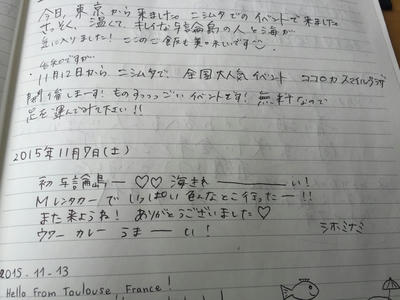 今日、東京から来ました ニシムタでのイベントで来ました
さっそく、温くて、キレイな与論島の人と海が
気に入りました! ここのご飯も美味いです
ちなみにですが
11月12日から、ニシムタで、全国大人気イベント ココロカスマイルラジオ
開催しまーす! ものすっっっごいイベントです! 無料なので
足を運んでみて下さい!!
2015年11月7日(土)
初与論島ー♡♡ 海きれーーい!
Mレンタカーで いっぱい色んなとこ行ったー!!
また来ようね! ありがとうございました♡
ウワー カレー うまーーい!
シホミナミ
2015.11.13
Hello from Toulouse, France!